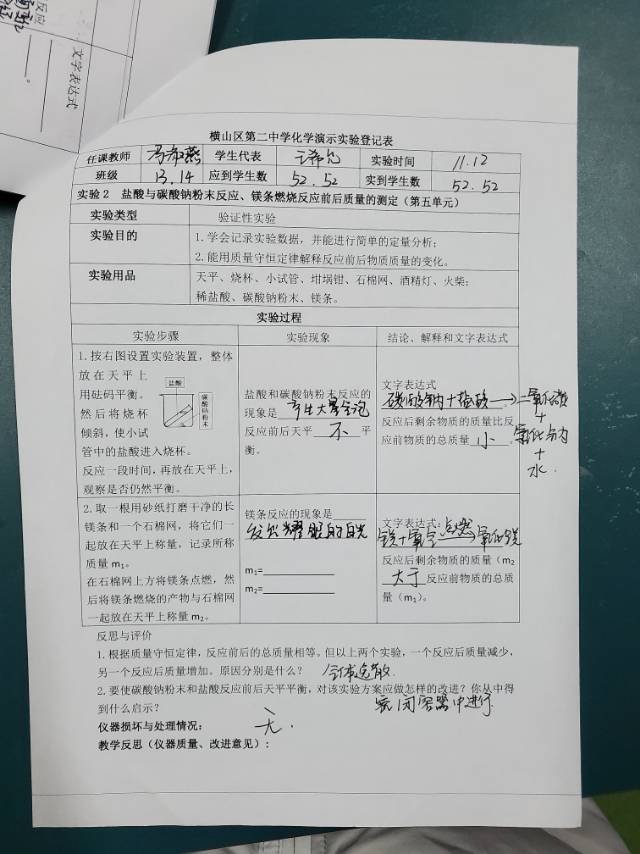 反应
文字表达式
横山区第二中学化学演示实验登记表
任课教师 冯淑燕 学生代表 实验时间 11.12
班级 13.14 应到学生数 52.52 实到学生数 52.52
实验2 盐酸与碳酸钠粉末反应、镁条燃烧反应前后质量的测定（第五单元）
实验类型 验证性实验
实验目的 1.学会记录实验数据，并能进行简单的定量分析；
2.能用质量守恒定律解释反应前后物质质量的变化。
实验用品 天平、烧杯、小试管、坩埚钳、石棉网、酒精灯、火柴；
稀盐酸、碳酸钠粉末、镁条。
实验过程
实验步骤 实验现象 结论、解释和文字表达式
1.按右图设置实验装置，整体
放在天平上
用砝码平衡。
然后将烧杯
倾斜，使小试
管中的盐酸进入烧杯。
反应一段时间，再放在天平上，
观察是否仍然平衡。
盐酸
碳酸钠粉末
盐酸和碳酸钠粉末反应的
现象是 产生大量气泡
反应前后天平 不 平
衡。
文字表达式
碳酸钠+盐酸→二氧化碳
+
氯化钠
+
水.
反应后剩余物质的质量比反
应前物质的总质量 小 。
2.取一根用砂纸打磨干净的长
镁条和一个石棉网，将它们一
起放在天平上称量，记录所称
质量m₁。
在石棉网上方将镁条点燃，然
后将镁条燃烧的产物与石棉网
一起放在天平上称量m₂。
镁条反应的现象是
发出耀眼的白光
m₁=
m₂=
文字表达式：点燃
镁+氧气→氧化镁
反应后剩余物质的质量（m₂
大于 反应前物质的总质
量（m₁）。
反思与评价
1.根据质量守恒定律，反应前后的总质量相等。但以上两个实验，一个反应后质量减少，
另一个反应后质量增加。原因分别是什么？ 气体逸散.
2.要使碳酸钠粉末和盐酸反应前后天平平衡，对该实验方案应做怎样的改进？你从中得
到什么启示？ 密闭容器中进行
仪器损坏与处理情况： 无.
教学反思（仪器质量、改进意见）：